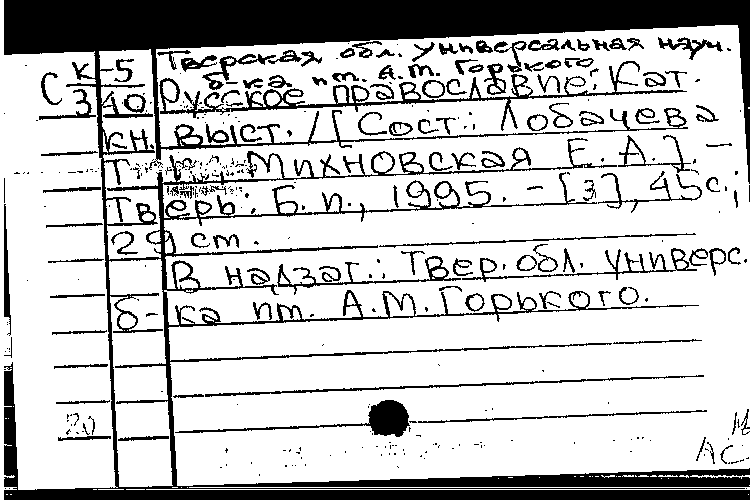 Тверская обл. универсальная науч.
б-ка им. А.М. Горького
С К-5
340
Русское православие: Кат.
кн. выст. / [Сост.: Лобачева
Т. Михновская Е. А.]. –
Тверь: Б. и., 1995. – [3], 45с.;
29 см.
В надзаг.: Твер. обл. универс.
б-ка им. А.М. Горького.
20
АС